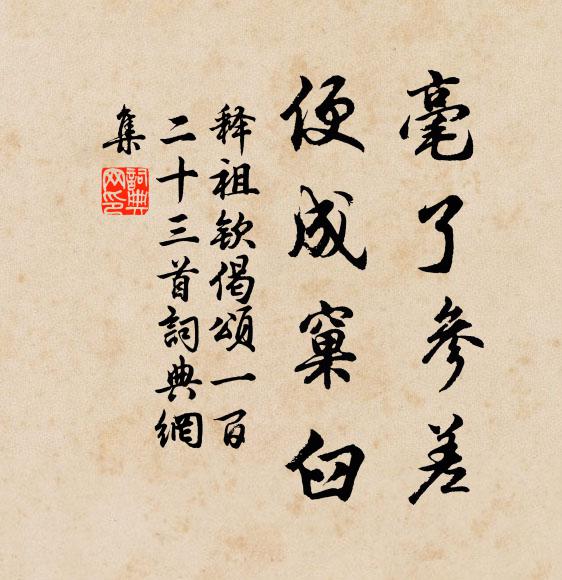 毫了參差
便成窠臼
释祖钦偈頌一百
二十三首詞典網
集
詞典
网印